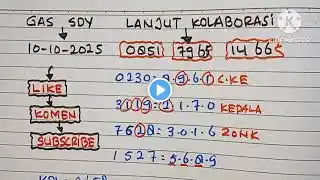 GAS SDY LANJUT KOLABORASI
10-10-2025 0851 7965 1466
LIKE
0230 = 9.9.6.1 C.KE
KOMEN
3119 = 2.1.7.0 KEPALA
SUBSCRIBE
7628 = 3.0.1.6 ZONK
1527 = 5.6.8.9